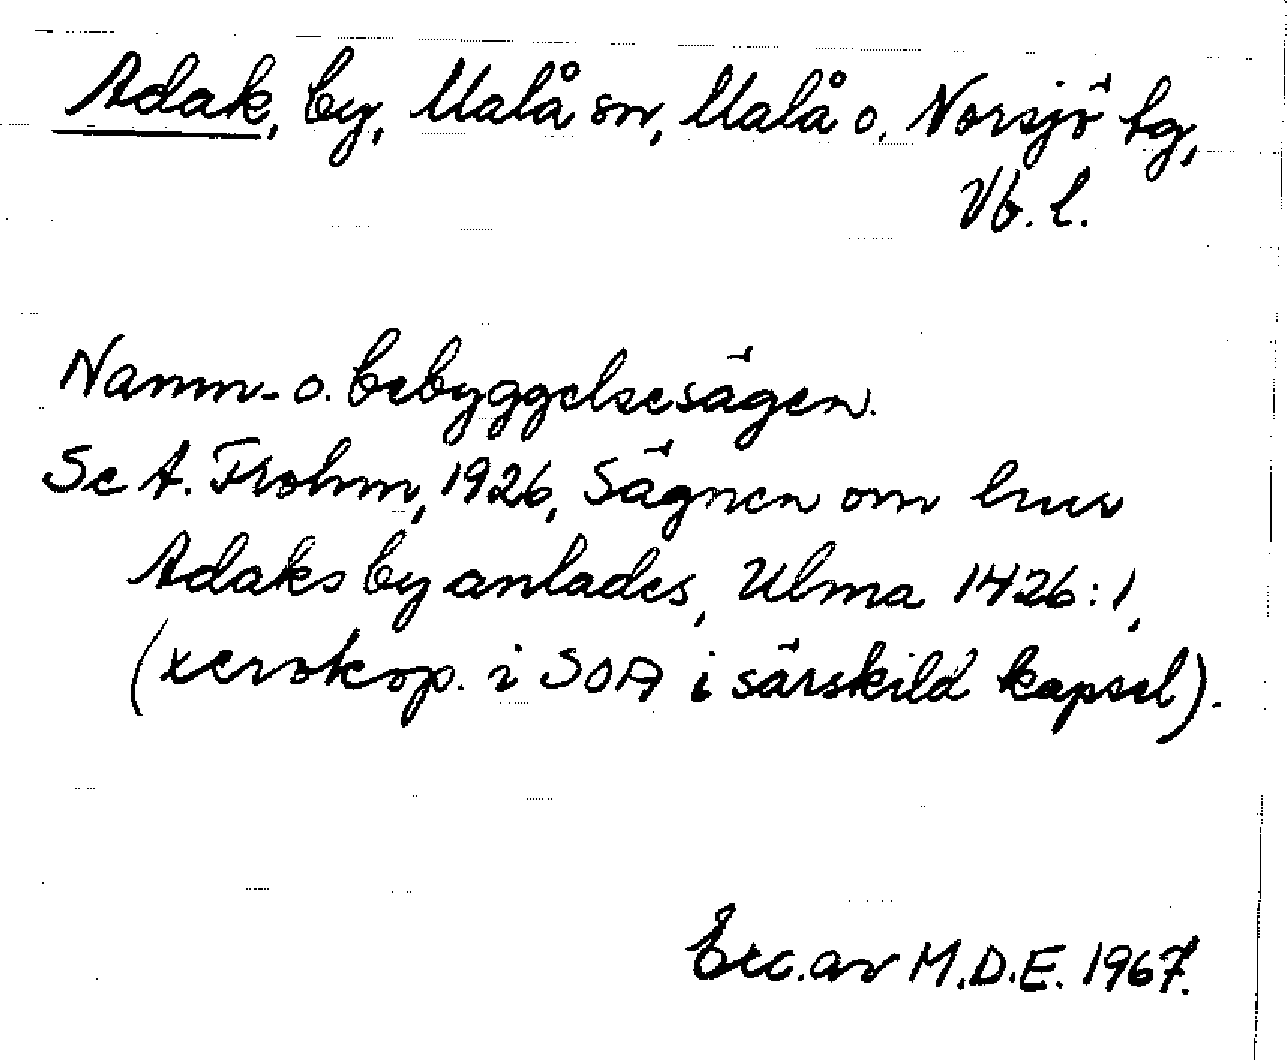 Adak, by, Malå sn, Malå o. Norsjö tg,
Vb. l.
Namn- o. bebyggelsesägen.
Se A. Frohm, 1926, Sägnen om hur
Adaks by anlades, Ulma 1426:1,
(xerokop. i SOA i särskild kapsel).
Exc. av M.D.E. 1967.